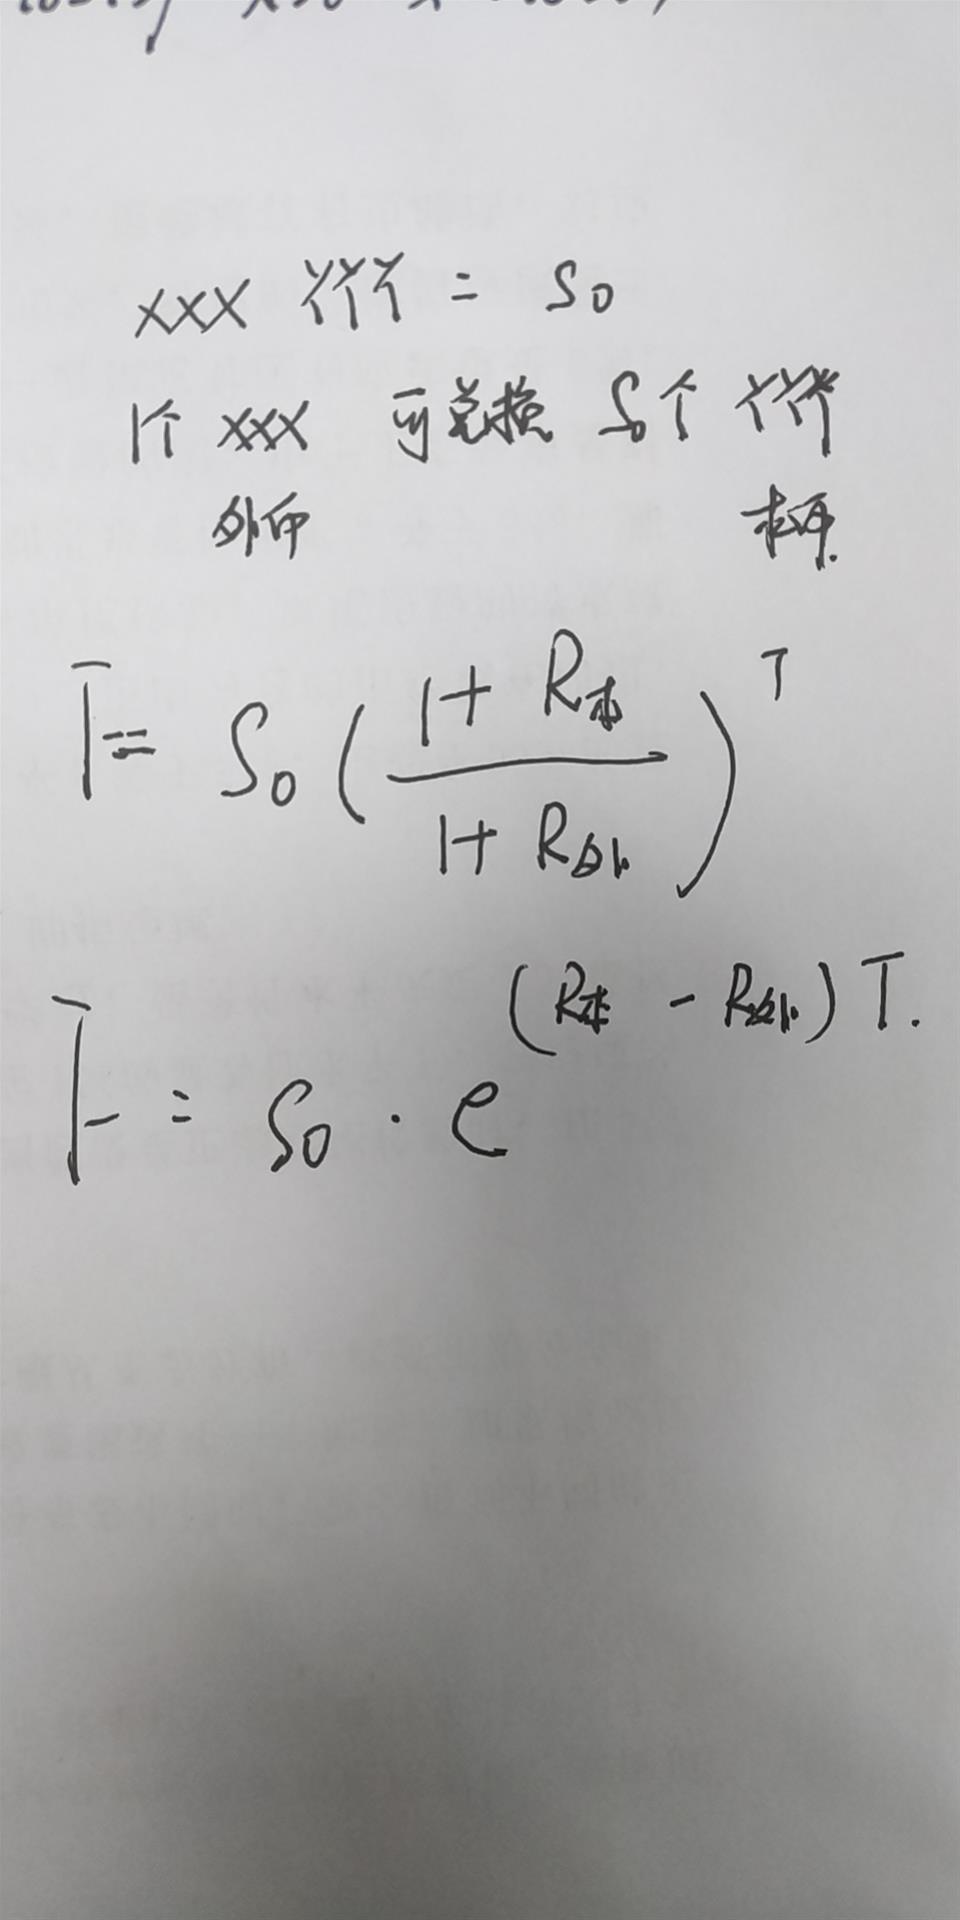 XXX YYY = S₀
1个 XXX 可兑换 S₀个 YYY
外币 本币.
F = S₀ ( (1 + R本) / (1 + R外) )ᵀ
F = S₀ · e^(R本 - R外) T.